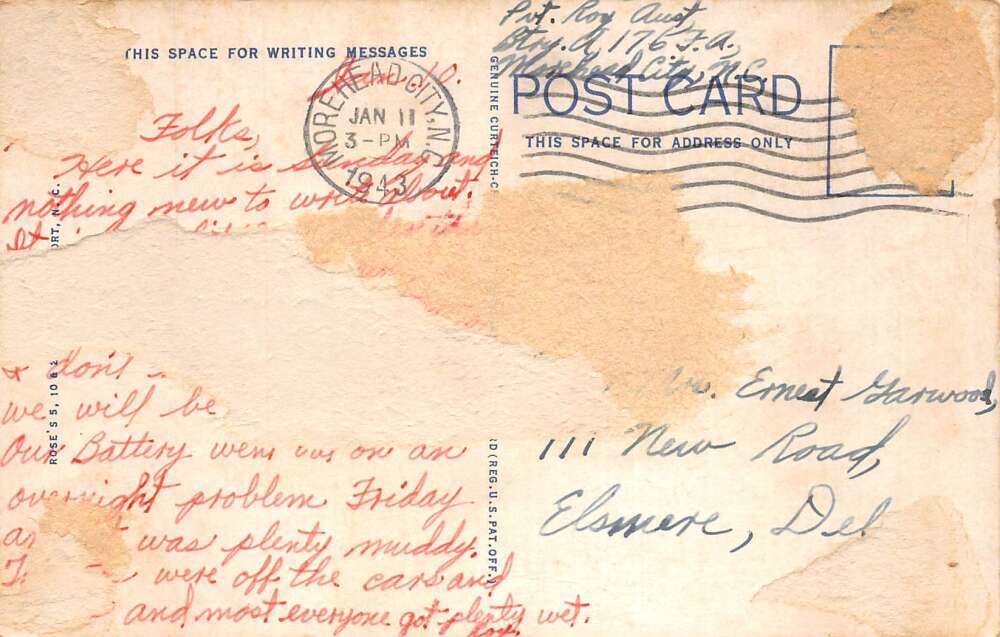 THIS SPACE FOR WRITING MESSAGES
Jan. 10.
Folks,
Here it is Sunday and
nothing new to write about.
It is
& don't
we will be
Our Battery went out on an
overnight problem Friday
was plenty muddy.
were off the cars and
and most everyone got plenty wet.
Roy.
MOREHEAD CITY, N.C.
JAN 11
3-PM
1943
ORT, N.C.
ROSE'S 5, 10 &
GENUINE CURTEICH-C
D (REG. U.S. PAT. OFF.)
Pvt. Roy Aust,
Btry. A, 176 F.A.,
Morehead City, N.C.
POST CARD
THIS SPACE FOR ADDRESS ONLY
Ernest Garwood,
111 New Road,
Elsmere, Del.